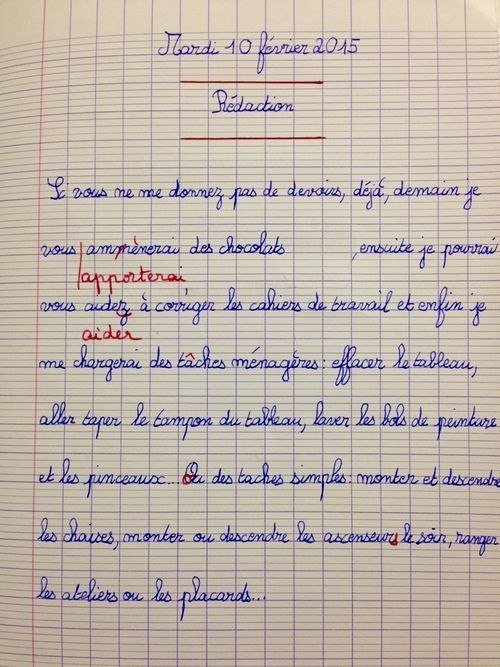 Mardi 10 février 2015
Rédaction
Si vous ne me donnez pas de devoirs, déjà, demain je
vous ammènerai des chocolats , ensuite je pourrai
apporterai
vous aidez à corriger les cahiers de travail et enfin je
aider
me chargerai des tâches ménagères : effacer le tableau,
aller taper le tampon du tableau, laver les bols de peinture
et les pinceaux... Ou des taches simples : monter et descendre
les chaises, monter ou descendre les ascenseurs le soir, ranger
les ateliers ou les placards...